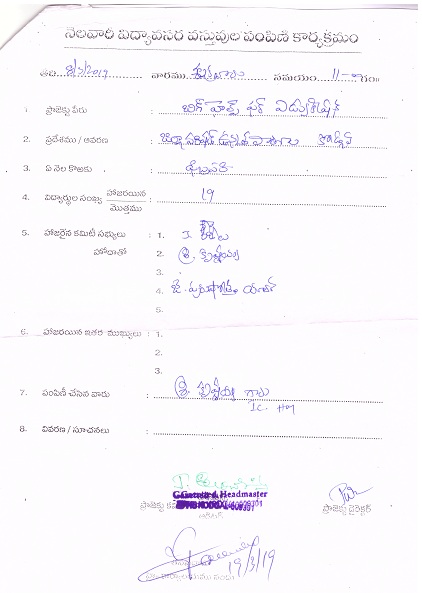 నెలవారీ విద్యావసర వస్తువుల పంపిణీ కార్యక్రమం
తేది 8/3/2019 వారము శుక్రవారం సమయం 11-00గం॥
1. ప్రాజెక్టు పేరు :
2. ప్రదేశము / ఆవరణ : జిల్లా పరిషత్ ఉన్నత పాఠశాల
3. ఏ నెల కొఱకు : ఫిబ్రవరి-
4. విద్యార్థుల సంఖ్య హాజరయిన / మొత్తము : 19
5. హాజరైన కమిటీ సభ్యులు : 1.
హోదాతో 2. శ్రీ. కృష్ణయ్య
3.
4. జి. పురుషోత్తం యాదవ్
5.
6. హాజరయిన ఇతర ముఖ్యులు : 1.
2.
3.
7. పంపిణీ చేసిన వారు : శ్రీ. కృష్ణయ్య గారు
I.C. HM
8. వివరణ / సూచనలు :
Gazetted Headmaster
ప్రాజెక్టు డైరెక్టర్
19/3/19